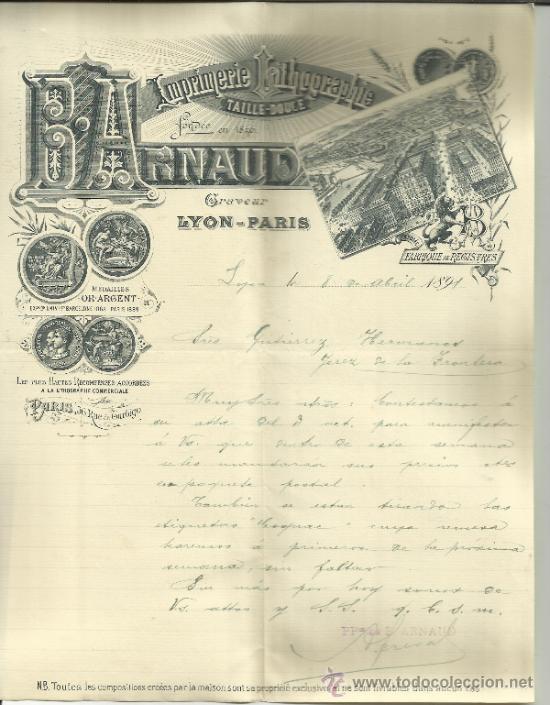 Imprimerie Lithographie
TAILLE-DOUCE
fondée en
E. ARNAUD
Graveur
LYON - PARIS
FABRIQUE DE REGISTRES
MÉDAILLES
OR-ARGENT
BARCELONE PARIS 1889
LES PLUS HAUTES RÉCOMPENSES ACCORDÉES
A LA LITHOGRAPHIE COMMERCIALE
PARIS, Rue
Lyon le 8 de Abril 1891
Sres Gutierrez Hermanos
Jerez de la Frontera
Muy Sres ntros: Contestamos á
su atta del para manifestar
á Vs. que dentro de esta semana
se les mandaran sus
en paquete postal.
Tambien se estan tirando las
etiquetas "Cognac" cuya remesa
haremos á primeros de la próxima
semana, sin faltar
Sin más por hoy somos de
Vs. attos y S.S. q. b. s. m.
E. ARNAUD
N.B. Toutes les compositions créées par la maison sont sa propriété exclusive et ne sont livrables dans aucun cas
todocoleccion.net